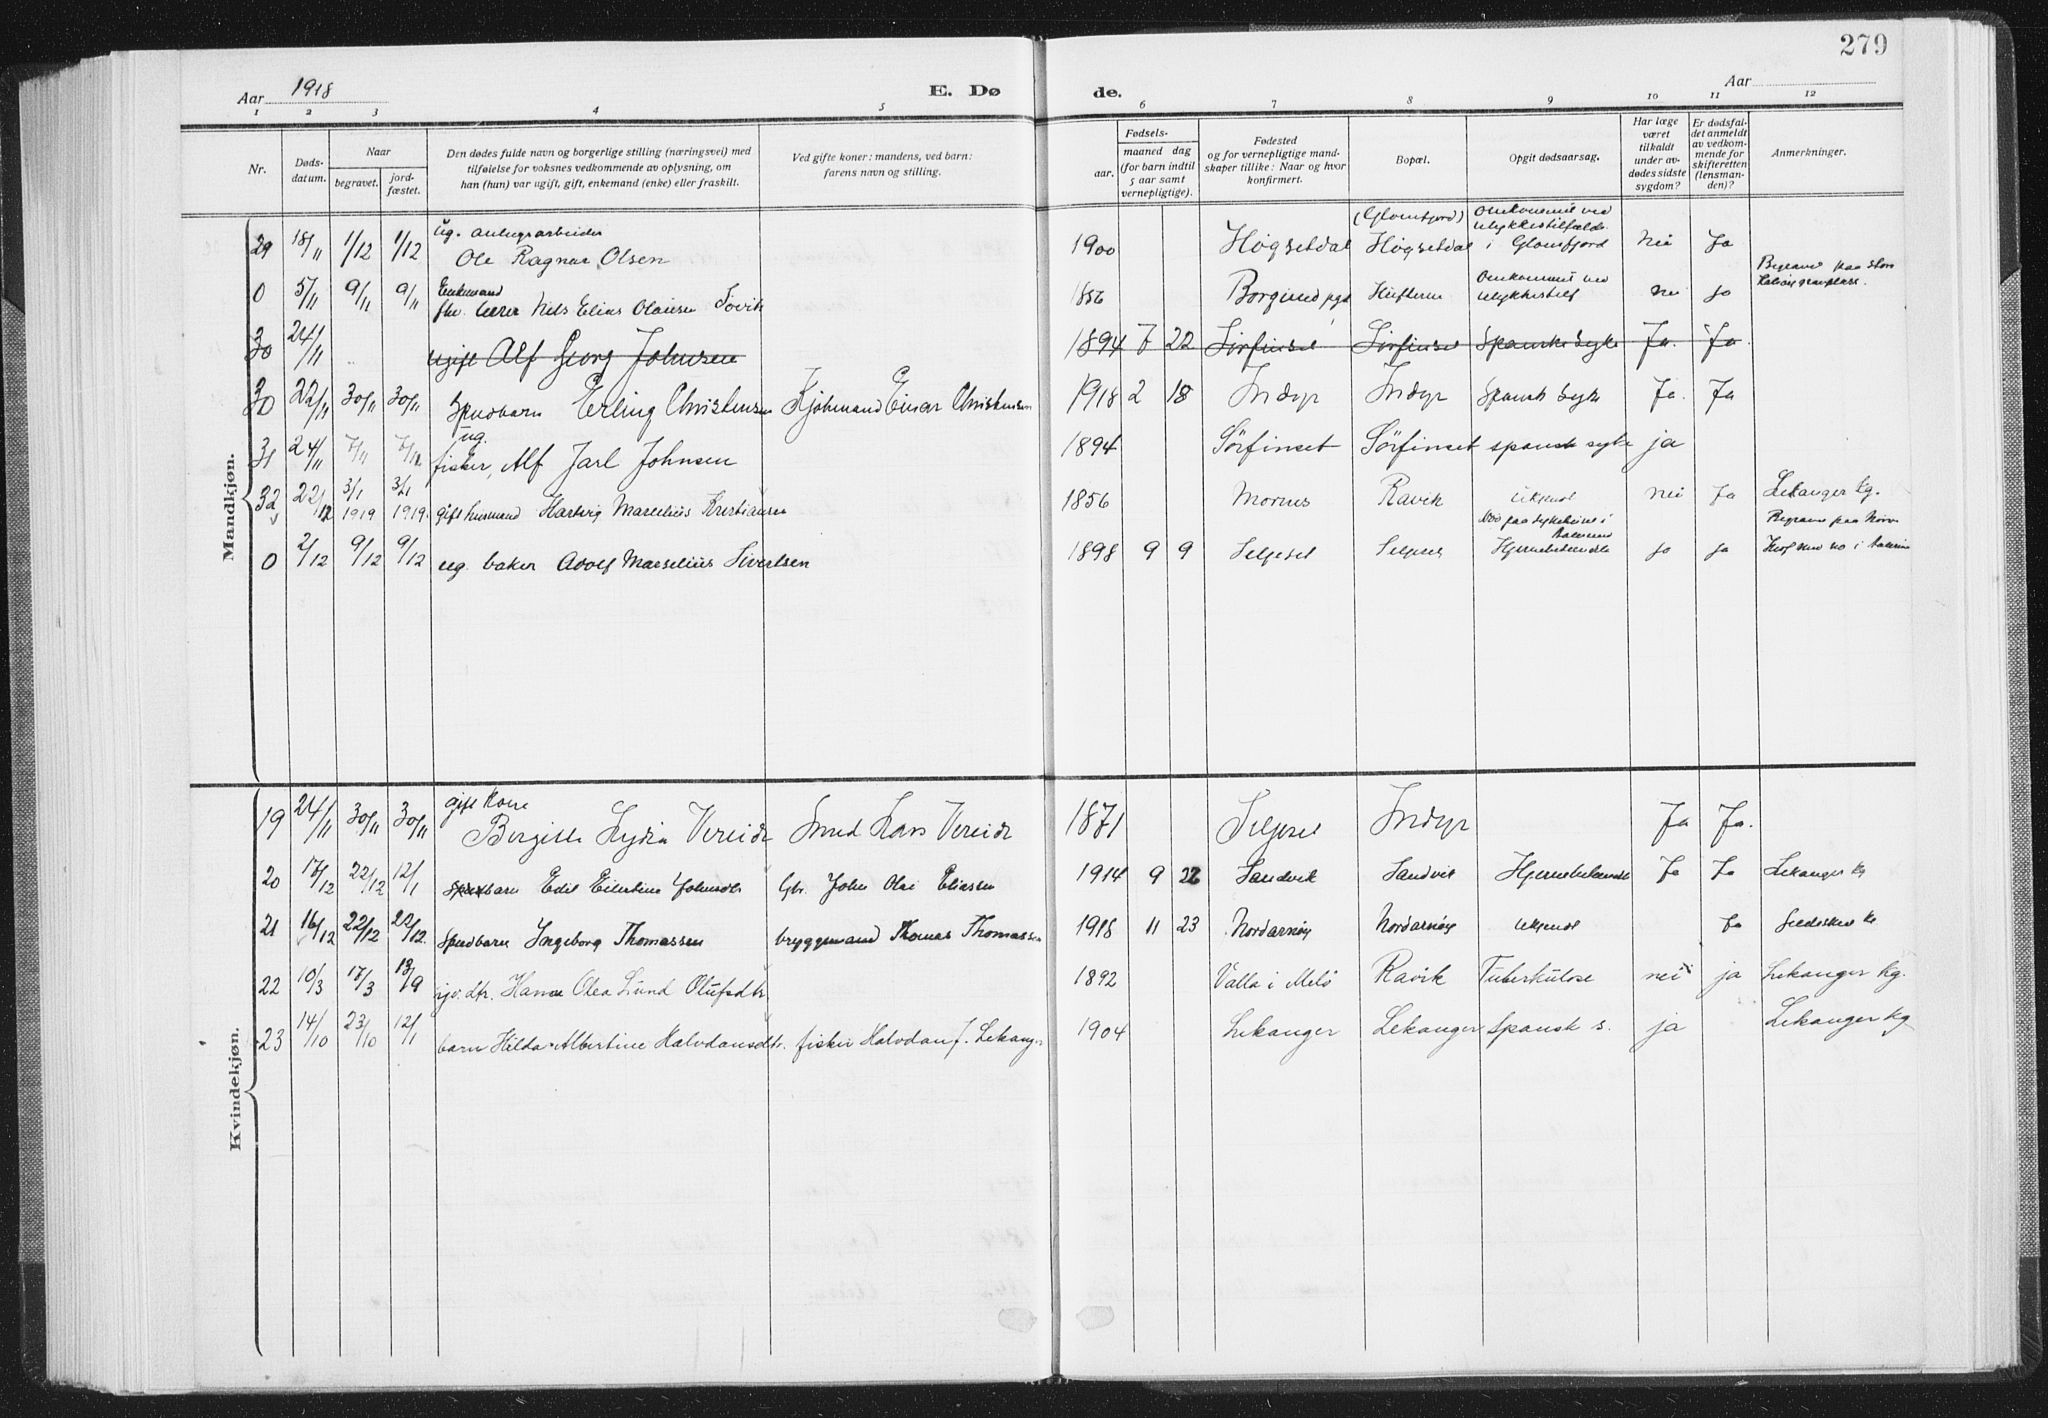 279
Aar 1918
E. Dø
de.
Aar
1 2 3 4 5 6 7 8 9 10 11 12
Nr.
Døds-
datum.
Naar
begravet.
jord-
fæstet.
Den dødes fulde navn og borgerlige stilling (næringsvei) med
tilføielse for voksnes vedkommende av oplysning, om
han (hun) var ugift, gift, enkemand (enke) eller fraskilt.
Ved gifte koner: mandens, ved barn:
farens navn og stilling.
Fødsels-
aar.
maaned dag
(for barn indtil
5 aar samt
vernepligtige).
Fødested
og for vernepligtige mand-
skaper tillike: Naar og hvor
konfirmert.
Bopæl.
Opgit dødsaarsag.
Har læge
været
tilkaldt
under av-
dødes sidste
sygdom?
Er dødsfal-
det anmeldt
av vedkom-
mende for
skifteretten
(lensman-
den)?
Anmerkninger.
Mandkjøn.
ug. anlegsarbeider (Glomfjord) Omkommet ved
ulykkestilfælde
29 18/11 1/12 1/12 Ole Ragnar Olsen 1900 Høgsetdal Høgsetdal i Glomfjord nei Ja
Enkemand Omkommet ved Begravet paa
0 5/11 9/11 9/11 fhv. lærer Nils Elias Olaisen Sovik 1856 Borgund pgd ulykkestilf nei ja
30 24/11 ugift Alf Georg Johnsen 1894 7 22 Sörfinset Sörfinset Spanske Syke Ja. Ja.
30 22/11 30/11 30/11 Spedbarn Erling Christensen Kjøbmand Einar Christensen 1918 2 18 Indyr Indyr Spansk Syke Ja. Ja
ug.
31 24/11 7/11 7/12 fisker, Alf Jarl Johnsen 1894 Sörfinset Sörfinset spansk syke ja
32 22/12 3/1 1919 3/1 1919. gift husmand Hartvig Marcelius Kristiansen 1856 Mornes Ravik Ukjendt nei Ja Lekanger kg.
Død paa sykehuset i Begravet paa
0 2/12 9/12 9/12 ug. baker Adolf Marselius Sivertsen 1898 9 9 Selseset Selseset Hjernebetændelse ja ja
Kvindekjøn.
gift kone
19 24/11 30/11 30/11 Bergitte Lydia Vereide Smed Lars Vereide 1871 Indyr Ja Ja.
20 17/12 22/12 12/1 barn Edil Eilertine Johnsdtr Gbr. John Olai Eliassen 1914 9 22 Sandvik Sandvik Hjernebetændelse Ja Ja Lekanger kg
21 16/12 22/12 22/12. Spedbarn Ingeborg Thomassen bryggemand Thomas Thomassen 1918 11 23 Nordarnøy Nordarnøy Ukjendt Ja Gildeskaal k
22 10/3 17/3 13/9 gv. dtr. Hanna Olea Lund Olufsdtr 1892 Valla i Melö Ravik Tuberkulose nei ja Lekanger kg.
23 14/10 23/10 12/1 barn Hilda Albertine Halvdansdtr. fisker Halvdan J. Lekanger 1904 Lekanger Lekanger Spansk s. ja Lekanger kg